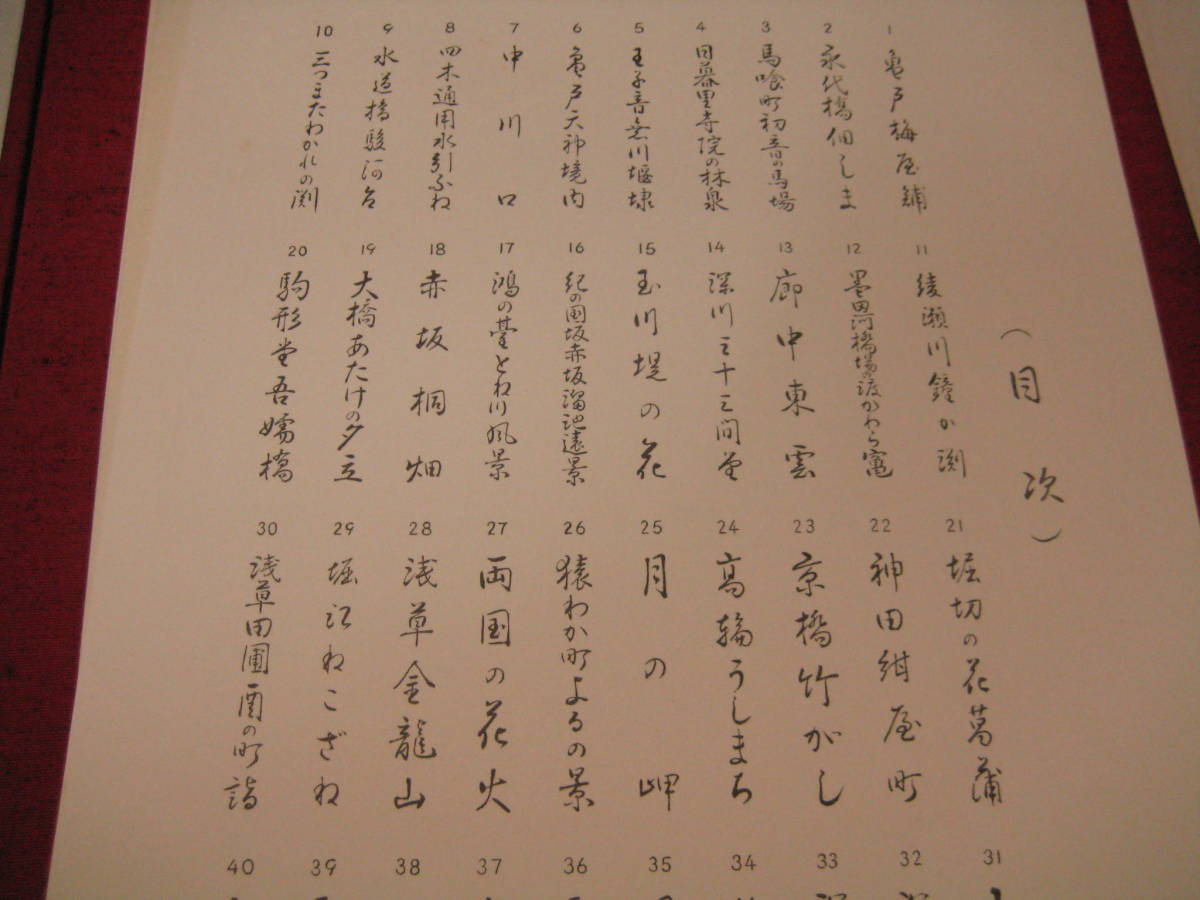 （目次）
1 亀戸梅屋舗
2 永代橋佃しま
3 馬喰町初音の馬場
4 日暮里寺院の林泉
5 王子音無川堰埭
6 亀戸天神境内
7 中川口
8 四木通用水引ふね
9 水道橋駿河台
10 三つまたわかれの渕
11 綾瀬川鐘か渕
12 墨田河橋場の渡かわら竈
13 廓中東雲
14 深川三十三間堂
15 玉川堤の花
16 紀の国坂赤坂溜池遠景
17 鴻の臺とね川風景
18 赤坂桐畑
19 大橋あたけの夕立
20 駒形堂吾嬬橋
21 堀切の花菖蒲
22 神田紺屋町
23 京橋竹がし
24 高輪うしまち
25 月の岬
26 猿わか町よるの景
27 両国の花火
28 浅草金龍山
29 堀江ねこざね
30 浅草田圃酉の町詣
31
32
33
34
35
36
37
38
39
40